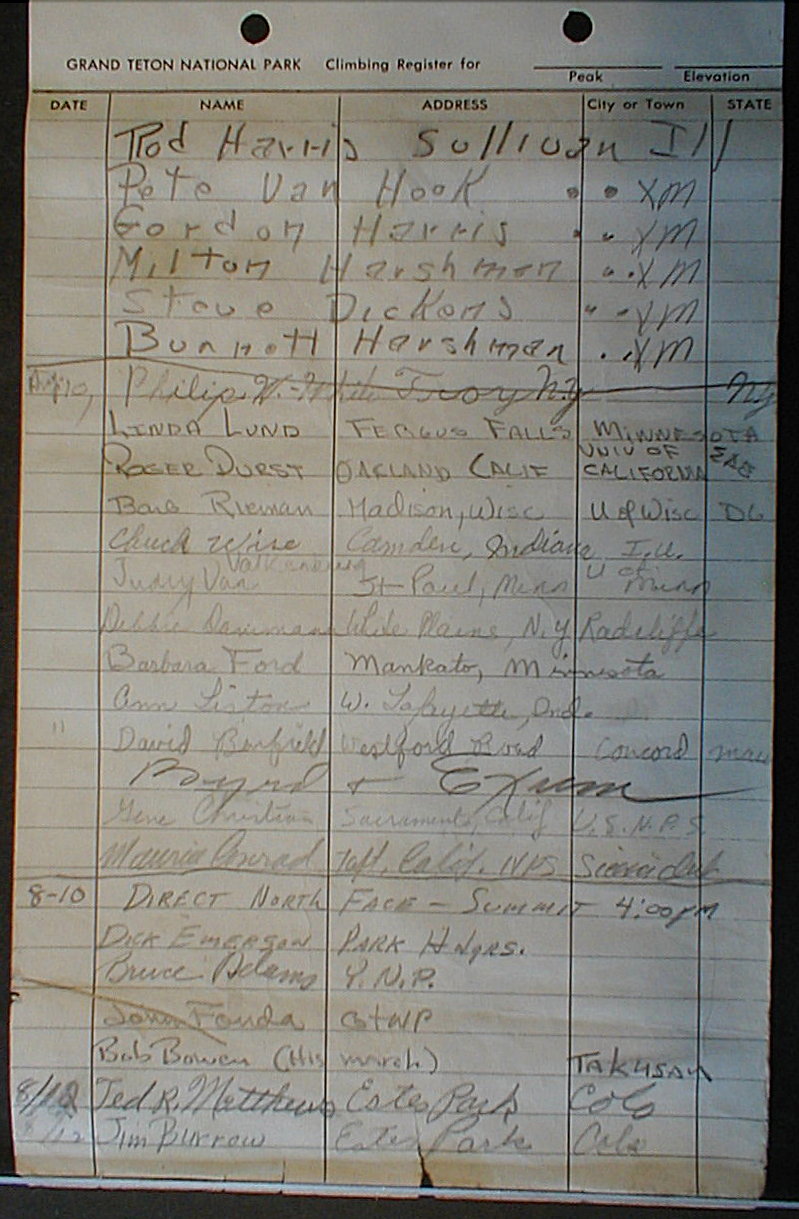 GRAND TETON NATIONAL PARK Climbing Register for
Peak Elevation
DATE NAME ADDRESS City or Town STATE
Rod Harris Sullivan Ill
Pete Van Hook " " YM
Gordon Harris " " YM
Milton Harshman " " YM
Steve Dickens " " YM
Burnett Harshman " " YM
Philip W. White Troy N.Y. NY
LINDA LUND FERGUS FALLS MINNESOTA
ROGER DURST OAKLAND CALIF UNIV OF CALIFORNIA
Barb Rieman Madison, Wisc U of Wisc
Chuck Wise Camden, Indiana I.U.
Judry Van Valkenburg St Paul, Minn U of Minn
Debbie White Plains, N.Y Radcliffe
Barbara Ford Mankato, Minnesota
Ann Liston W. Lafayette, Ind.
" David Westford Road Concord Mass
Byrd + Exum
Gene Christian Sacramento, Calif U.S.N.P.S.
Maurice Conrad Taft, Calif. NPS Sierra Club
8-10 DIRECT NORTH FACE - SUMMIT 4:00 PM
DICK EMERSON PARK HDQRS.
Bruce Adams Y.N.P.
John Fonda GTNP
Bob Bowen (His march) TAKUSAN
8/12 Ted R. Matthews Estes Park Colo
8/12 Jim Burrow Estes Park Colo